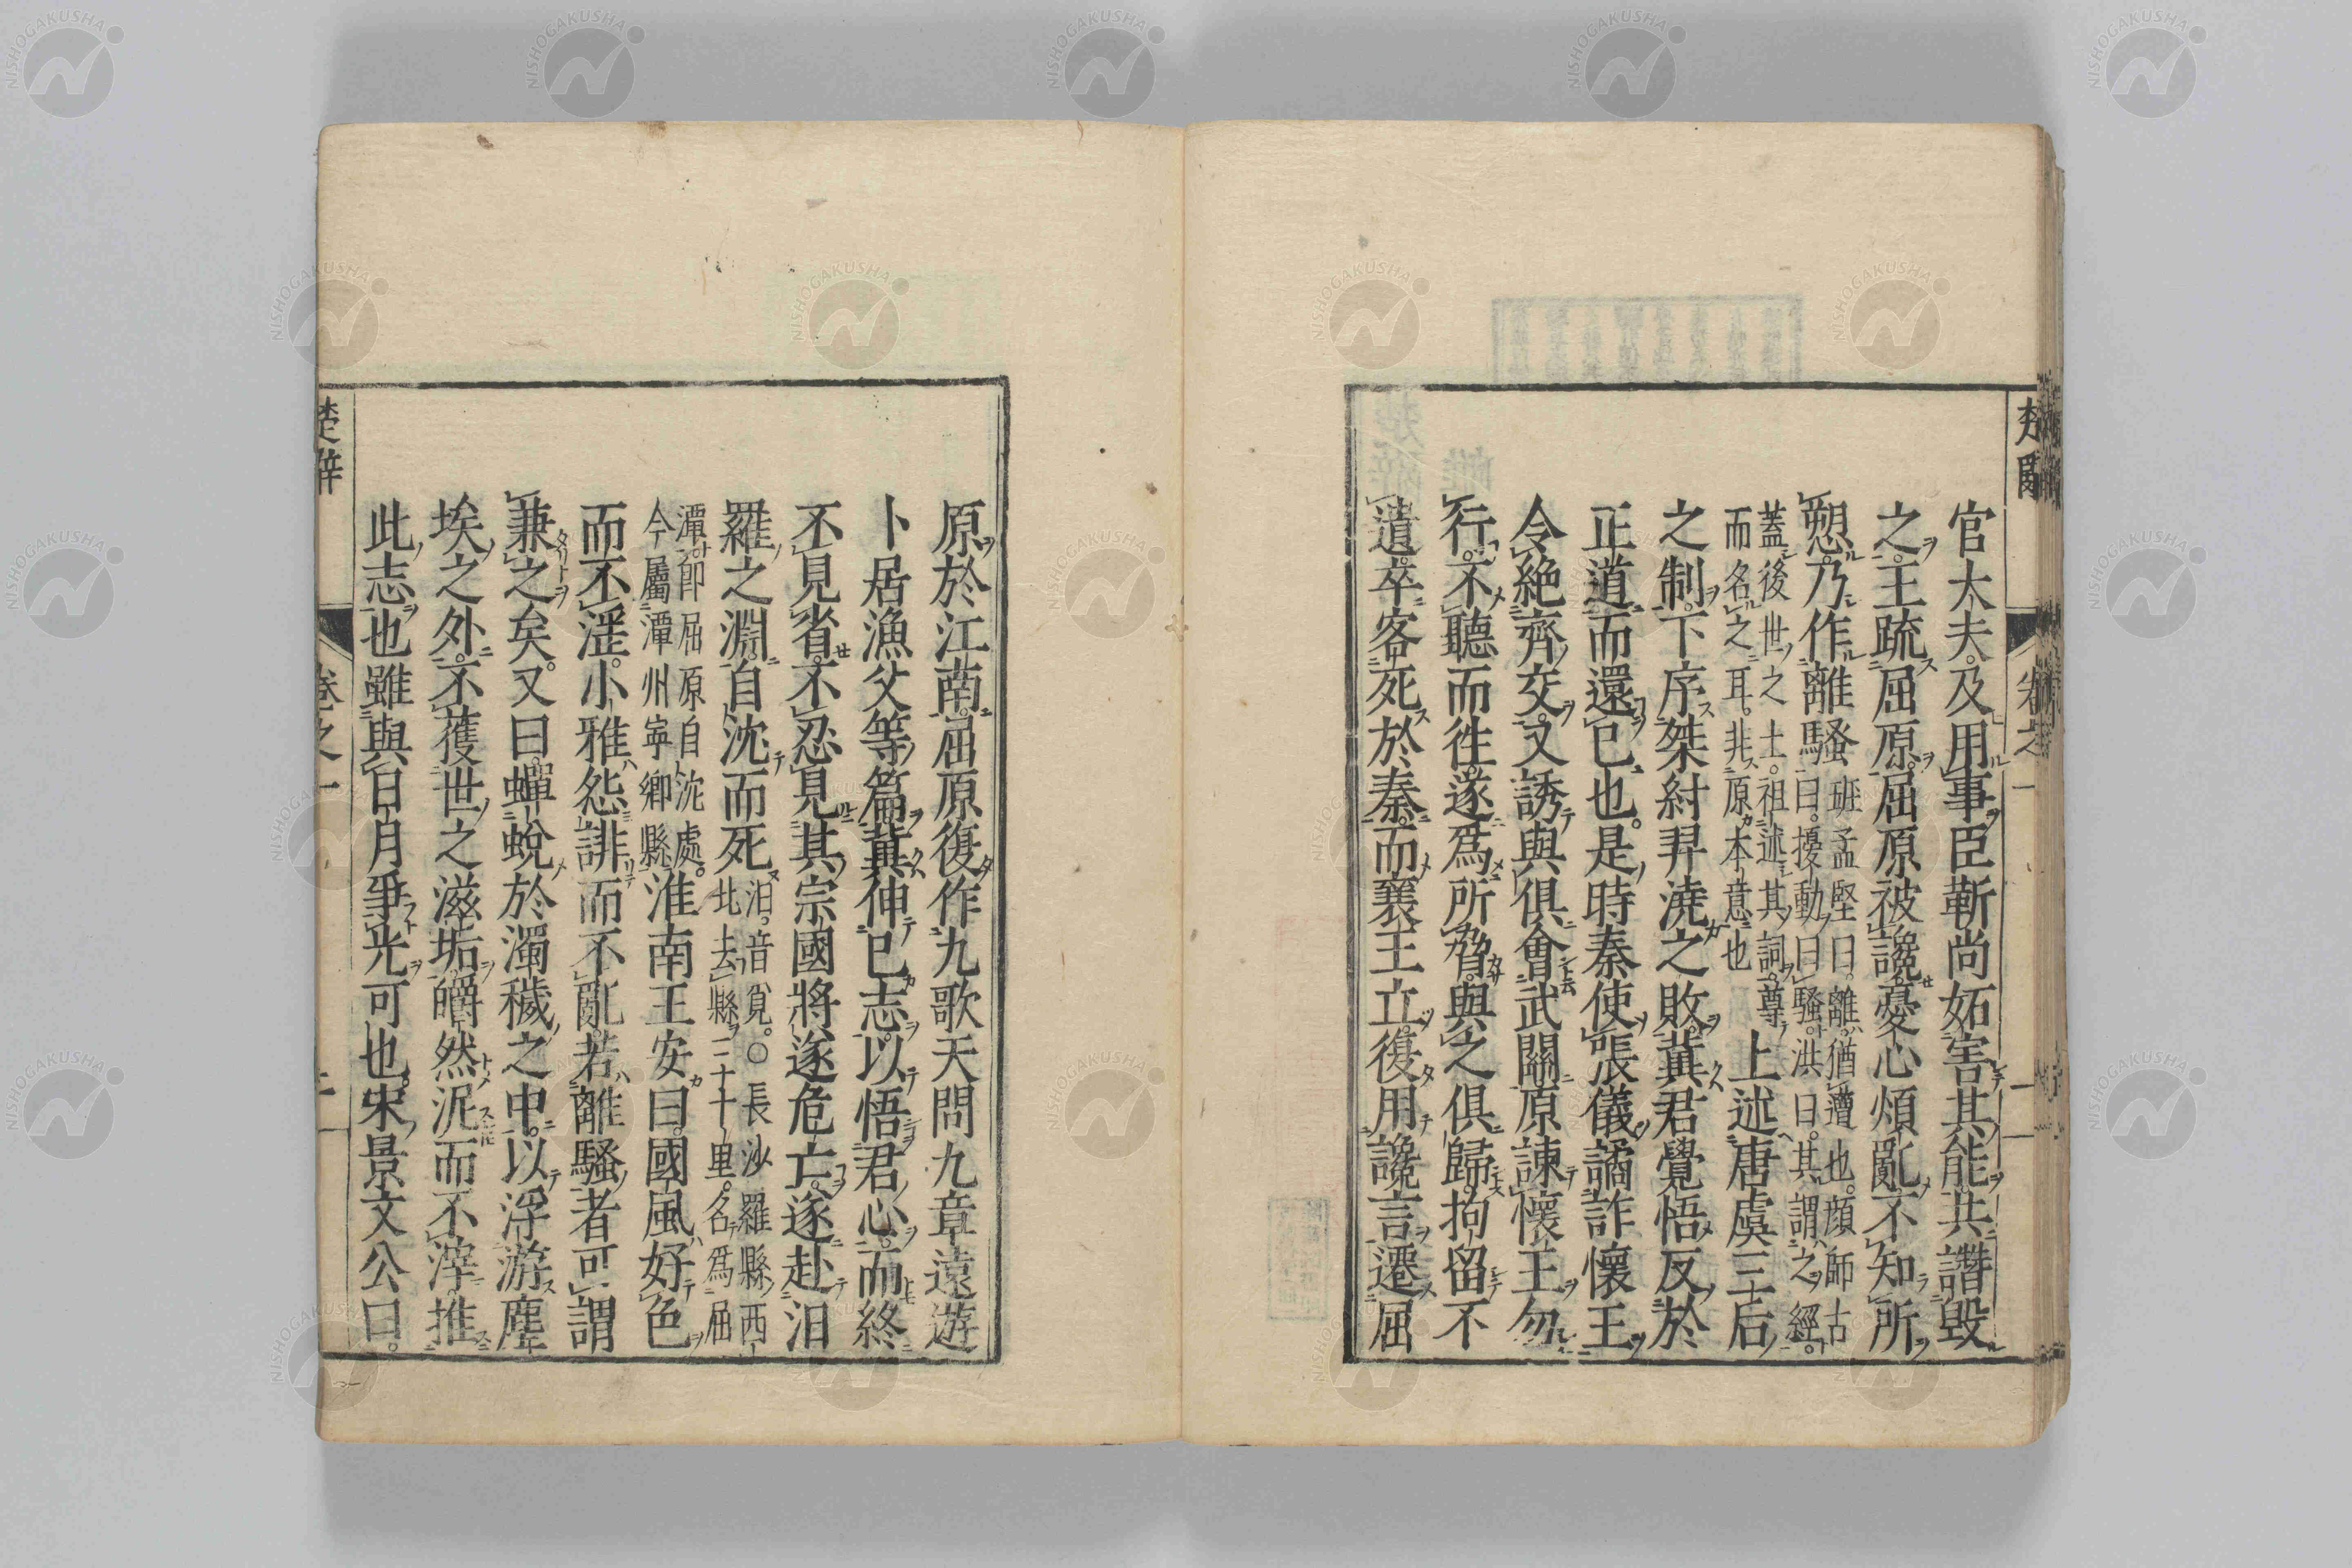 官大夫及用事臣靳尚妬害其能共譖毀
之王疏屈原屈原被讒憂心煩亂不知所
愬乃作離騷
班孟堅曰離猶遭也顔師古
曰擾動曰騷洪曰其謂之經
蓋後世之士祖述其詞尊
而名之耳非原本意也
上述唐虞三后
之制下序桀紂羿澆之敗冀君覺悟反於
正道而還已也是時秦使張儀譎詐懷王
令絶齊交又誘與俱會武關原諫懷王勿
行不聽而徃遂爲所脅與之俱歸拘留不
遣卒客死於秦而襄王立復用讒言遷屈
原於江南屈原復作九歌天問九章遠遊
卜居漁父等篇冀伸已志以悟君心而終
不見省不忍見其宗國將遂危亡遂赴汨
羅之淵自沈而死
汨音覓○長沙羅縣西
北去縣三十里名爲屈
潭即屈原自沈處
今屬潭州寧鄉縣
淮南王安曰國風好色
而不淫小雅怨誹而不亂若離騷者可謂
兼之矣又曰蟬蛻於濁穢之中以浮游塵
埃之外不獲世之滋垢皭然泥而不滓推
此志也雖與日月爭光可也宋景文公曰
楚辭
卷之一
NISHOGAKUSHA